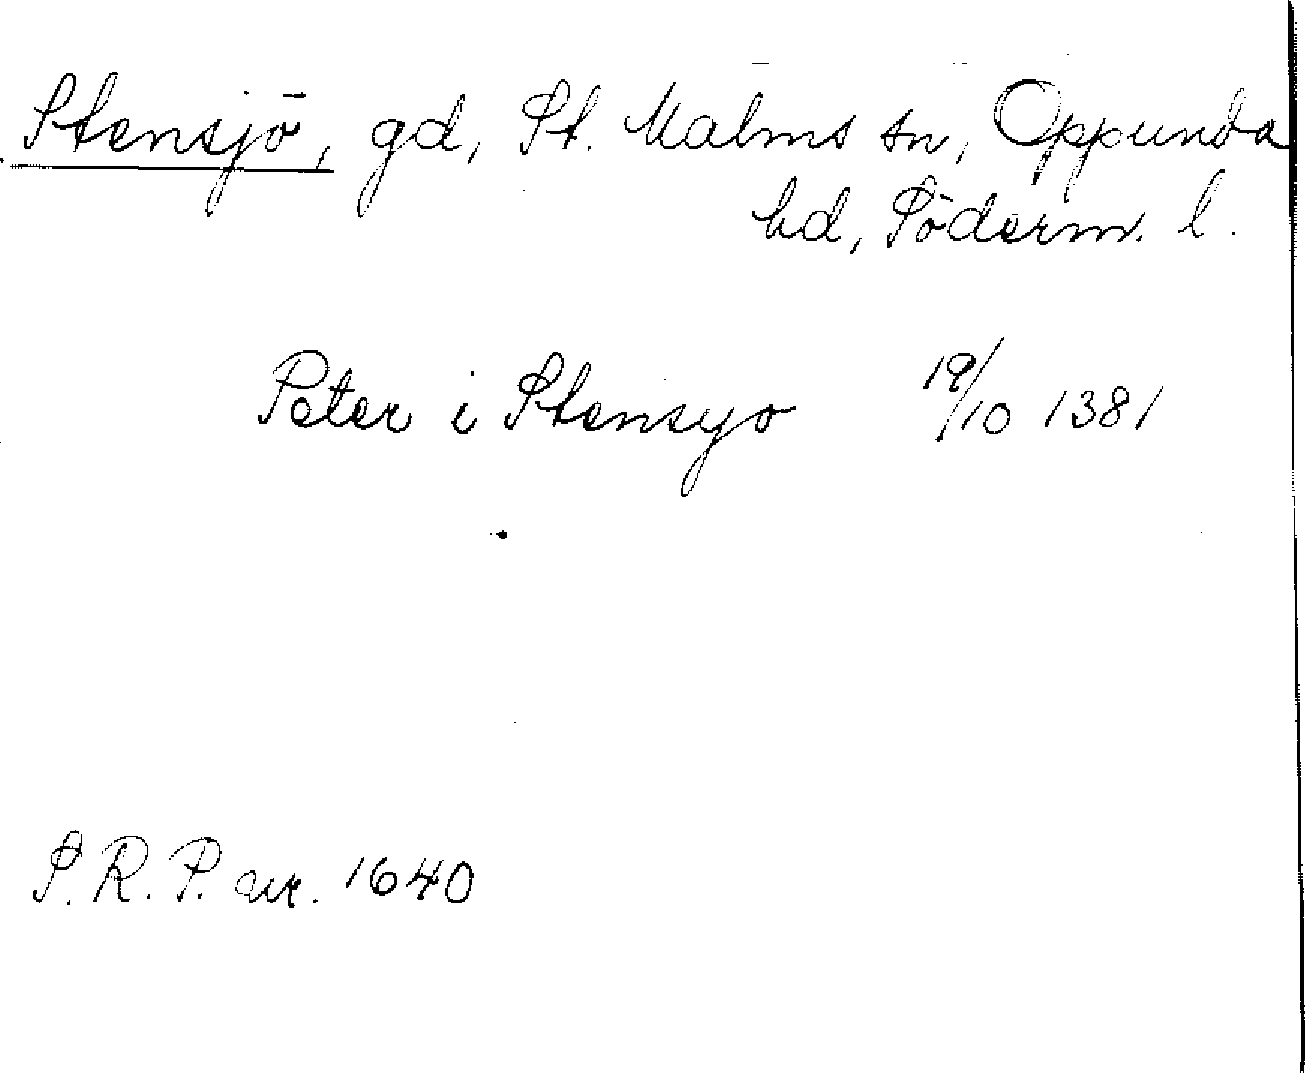 Stensjö, gd, St. Malms sn, Oppunda
hd, Söderm. l.
Peter i Stensyo 19/10 1381
S. R. P. nr. 1640